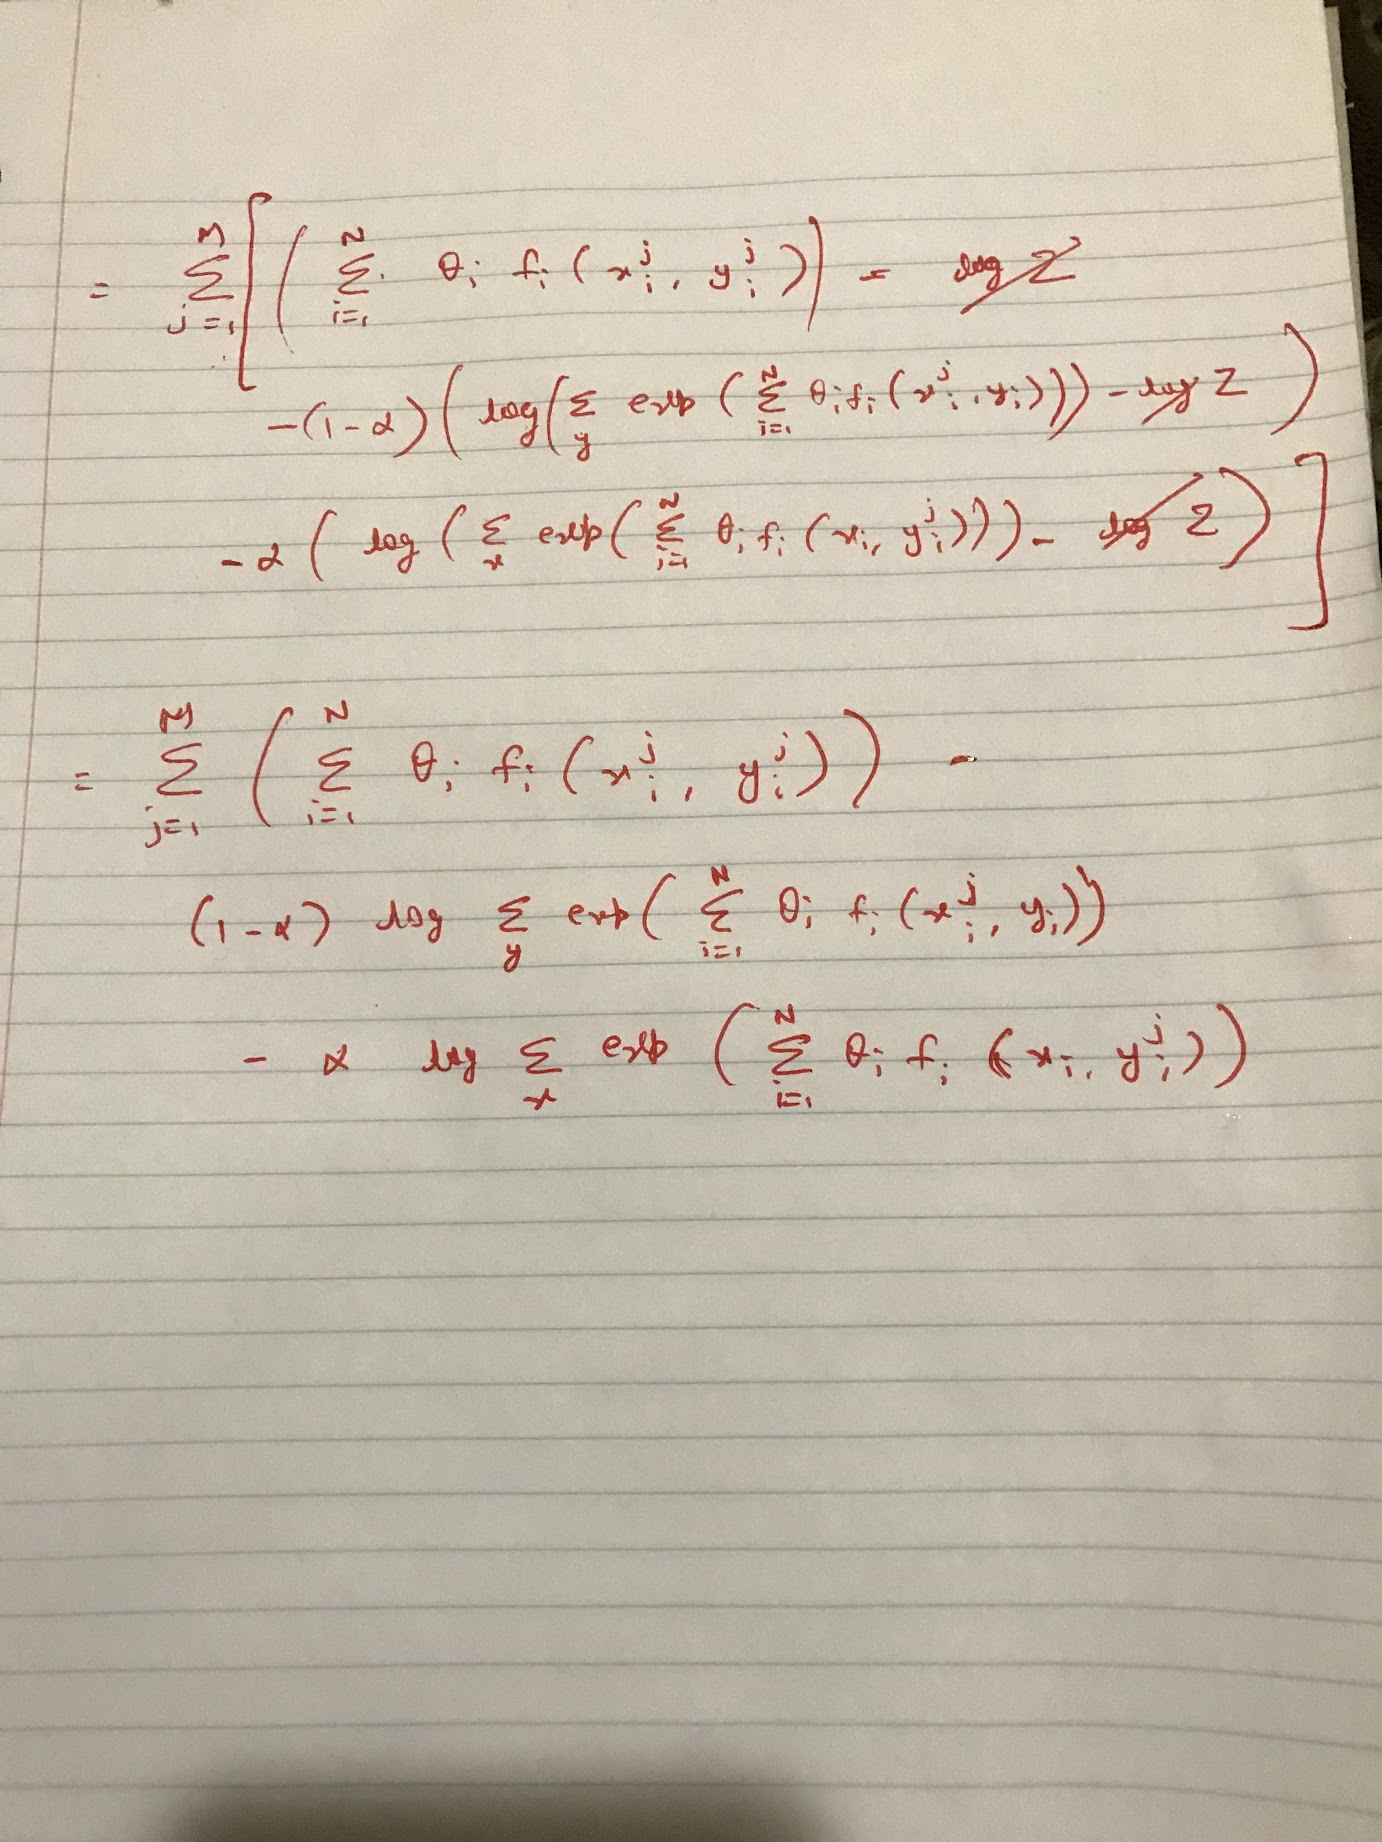 = \sum_{j=1}^{M} [ ( \sum_{i=1}^{N} θ_i f_i ( x_i^j , y_i^j ) ) - log Z
-(1-α) ( log ( \sum_y exp ( \sum_{i=1}^{N} θ_i f_i ( x_i^j , y_i ) ) ) - log Z )
- α ( log ( \sum_x exp ( \sum_{i=1}^{N} θ_i f_i ( x_i , y_i^j ) ) ) - log Z ) ]
= \sum_{j=1}^{M} ( \sum_{i=1}^{N} θ_i f_i ( x_i^j , y_i^j ) ) -
(1-α) log \sum_y exp ( \sum_{i=1}^{N} θ_i f_i ( x_i^j , y_i ) )
- α log \sum_x exp ( \sum_{i=1}^{N} θ_i f_i ( x_i , y_i^j ) )